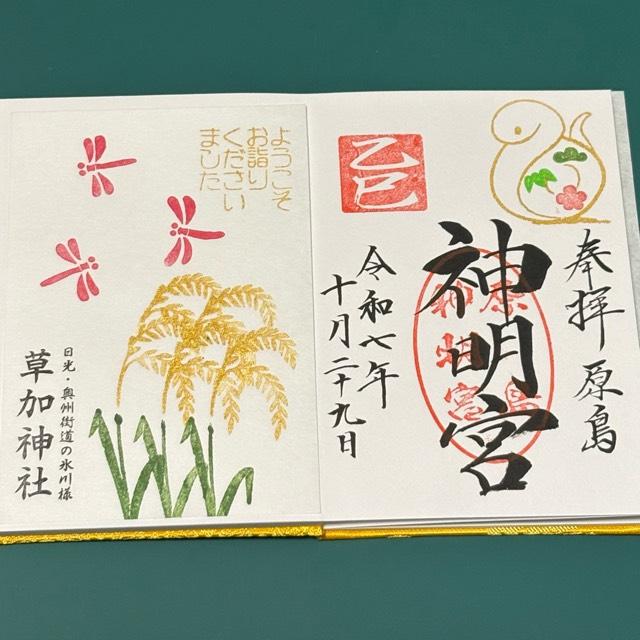 奉拝 原島
神明宮
原島
神明宮
乙巳
令和七年
十月二十九日
ようこそ
お詣り
ください
ました
日光・奥州街道の氷川様
草加神社